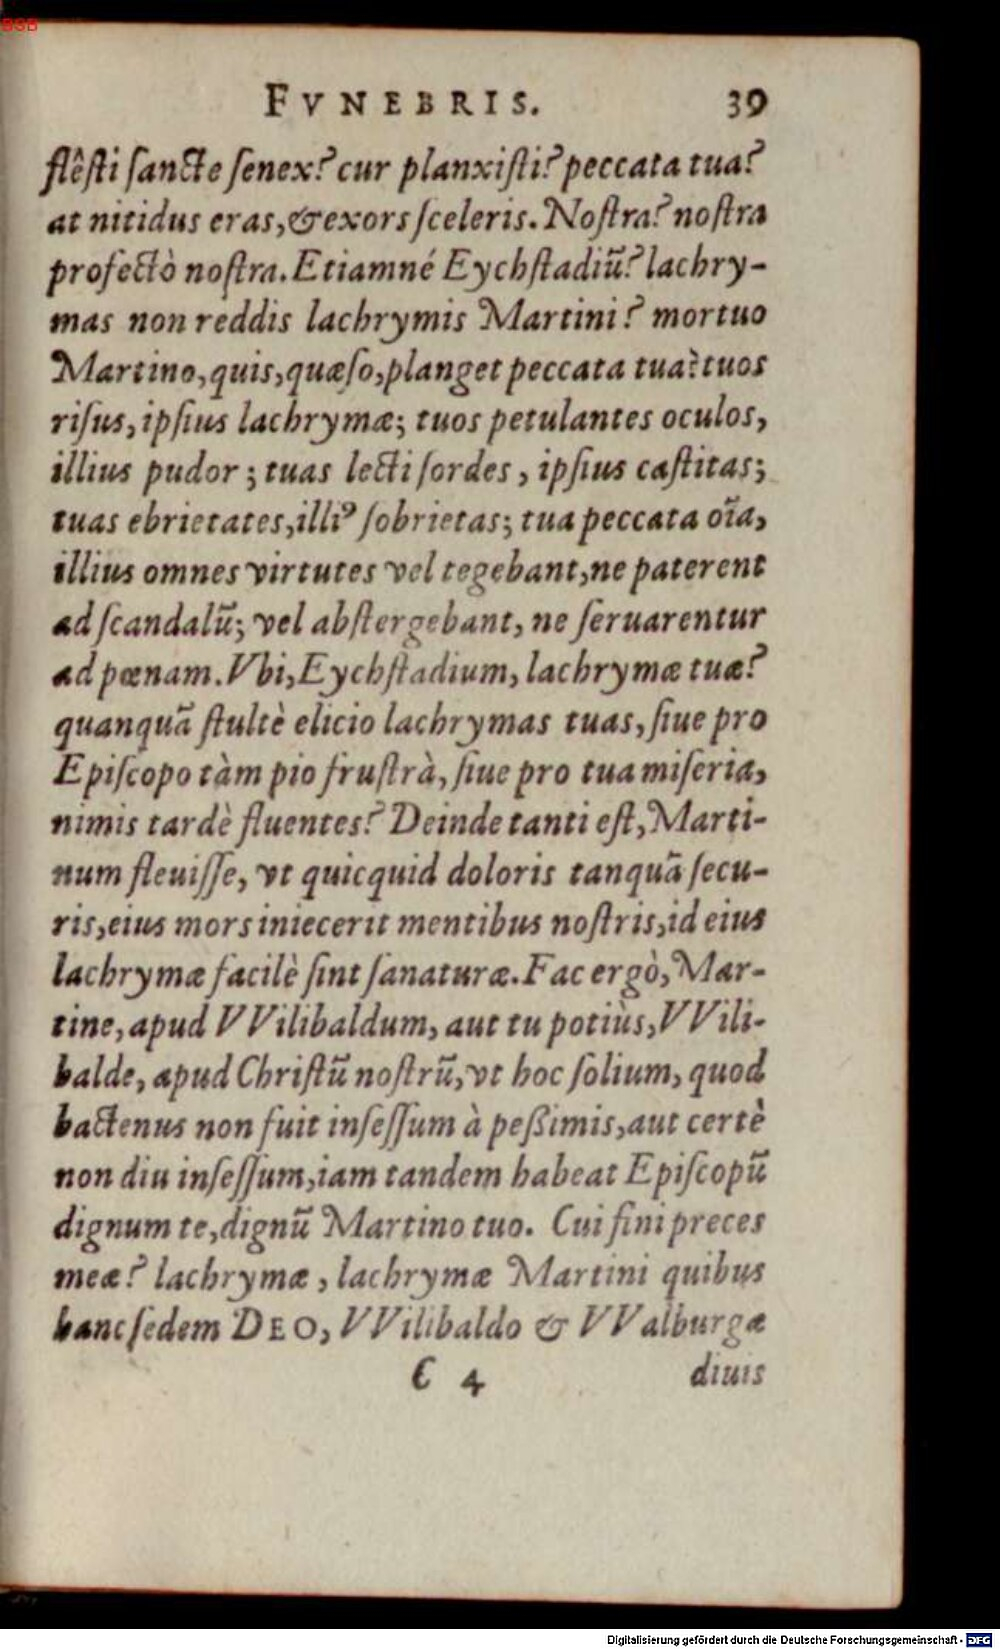 BSB
FVNEBRIS. 39
flêſti ſancte ſenex? cur planxiſti? peccata tua?
at nitidus eras, & exors ſceleris. Noſtra? noſtra
profectò noſtra. Etiamné Eychſtadiũ? lachry-
mas non reddis lachrymis Martini? mortuo
Martino, quis, quæſo, planget peccata tua? tuos
riſus, ipſius lachrymæ; tuos petulantes oculos,
illius pudor; tuas lecti ſordes, ipſius caſtitas;
tuas ebrietates, illiꝰ ſobrietas; tua peccata oĩa,
illius omnes virtutes vel tegebant, ne paterent
ad ſcandalũ; vel abſtergebant, ne ſeruarentur
ad pœnam. Vbi, Eychſtadium, lachrymæ tuæ?
quanquã ſtultè elicio lachrymas tuas, ſiue pro
Epiſcopo tàm pio fruſtrà, ſiue pro tua miſeria,
nimis tardè fluentes? Deinde tanti eſt, Marti-
num fleuiſſe, vt quicquid doloris tanquã ſecu-
ris, eius mors iniecerit mentibus noſtris, id eius
lachrymæ facilè ſint ſanaturæ. Fac ergò, Mar-
tine, apud VVilibaldum, aut tu potiùs, VVili-
balde, apud Chriſtũ noſtrũ, vt hoc ſolium, quod
hactenus non fuit inſeſſum à peßimis, aut certè
non diu inſeſſum, iam tandem habeat Epiſcopũ
dignum te, dignũ Martino tuo. Cui fini preces
meæ? lachrymæ, lachrymæ Martini quibus
hanc ſedem DEO, VVilibaldo & VValburgæ
C 4 diuis
Digitalisierung gefördert durch die Deutsche Forschungsgemeinschaft - DFG